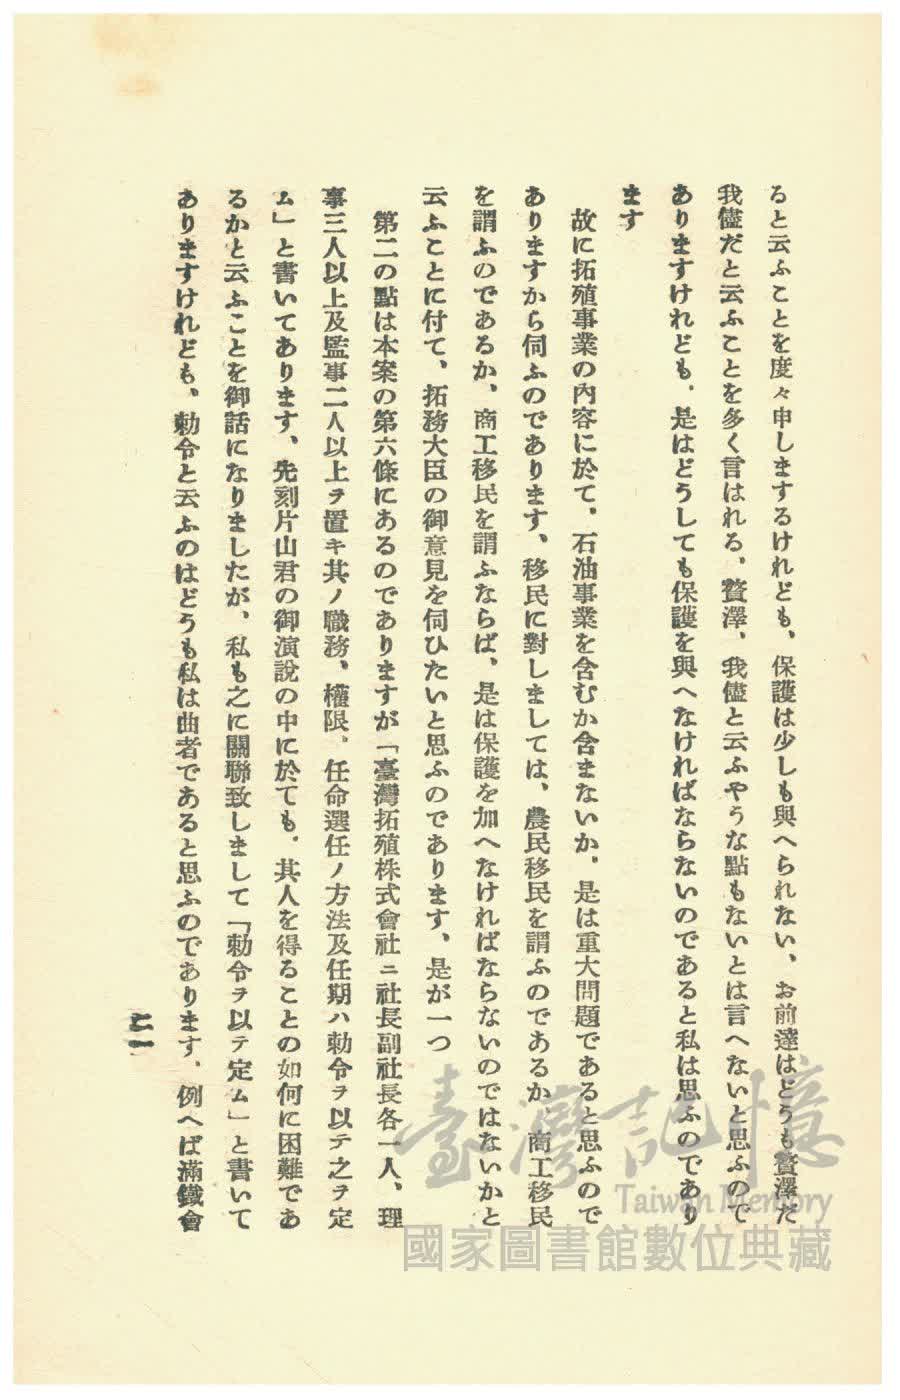 ると云ふことを度々申しまするけれども、保護は少しも與へられない、お前達はどうも贅澤だ
我儘だと云ふことを多く言はれる、贅澤、我儘と云ふやうな點もないとは言へないと思ふので
ありますけれども、是はどうしても保護を與へなければならないのであると私は思ふのであり
ます
故に拓殖事業の內容に於て、石油事業を含むか含まないか、是は重大問題であると思ふので
ありますから伺ふのであります、移民に對しましては、農民移民を謂ふのであるか、商工移民
を謂ふのであるか、商工移民を謂ふならば、是は保護を加へなければならないのではないかと
云ふことに付て、拓務大臣の御意見を伺ひたいと思ふのであります、是が一つ
第二の點は本案の第六條にあるのでありますが「臺灣拓殖株式會社ニ社長副社長各一人、理
事三人以上及監事二人以上ヲ置キ其ノ職務、權限、任命選任ノ方法及任期ハ勅令ヲ以テ之ヲ定
ム」と書いてあります、先刻片山君の御演說の中に於ても、其人を得ることの如何に困難であ
るかと云ふことを御話になりましたが、私も之に關聯致しまして「勅令ヲ以テ定ム」と書いて
ありますけれども、勅令と云ふのはどうも私は曲者であると思ふのであります、例へば滿鐵會
二一
臺灣記憶
Taiwan Memory
國家圖書館數位典藏